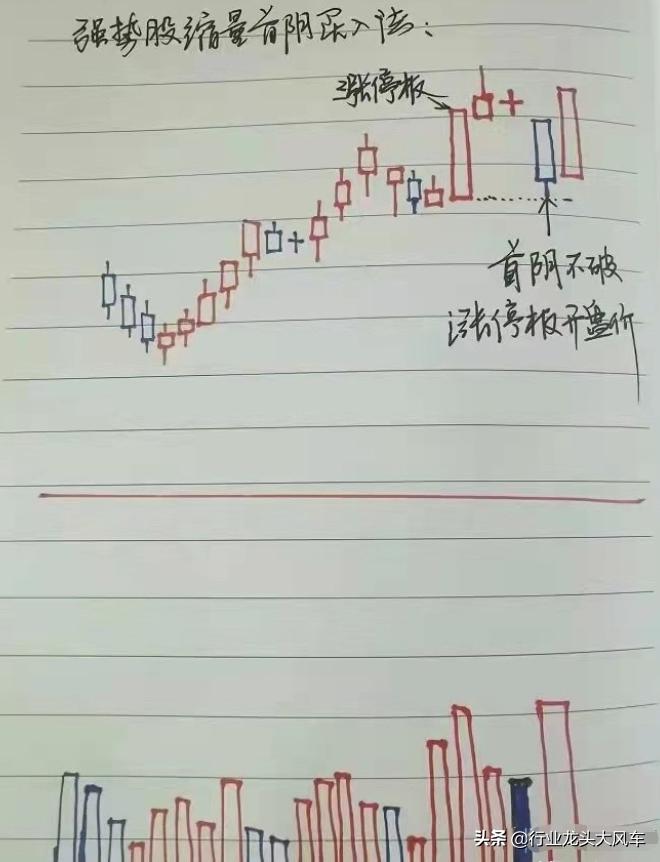 强势股缩量首阴买入法：
涨停板
首阴不破
涨停板开盘价
头条 @行业龙头大风车